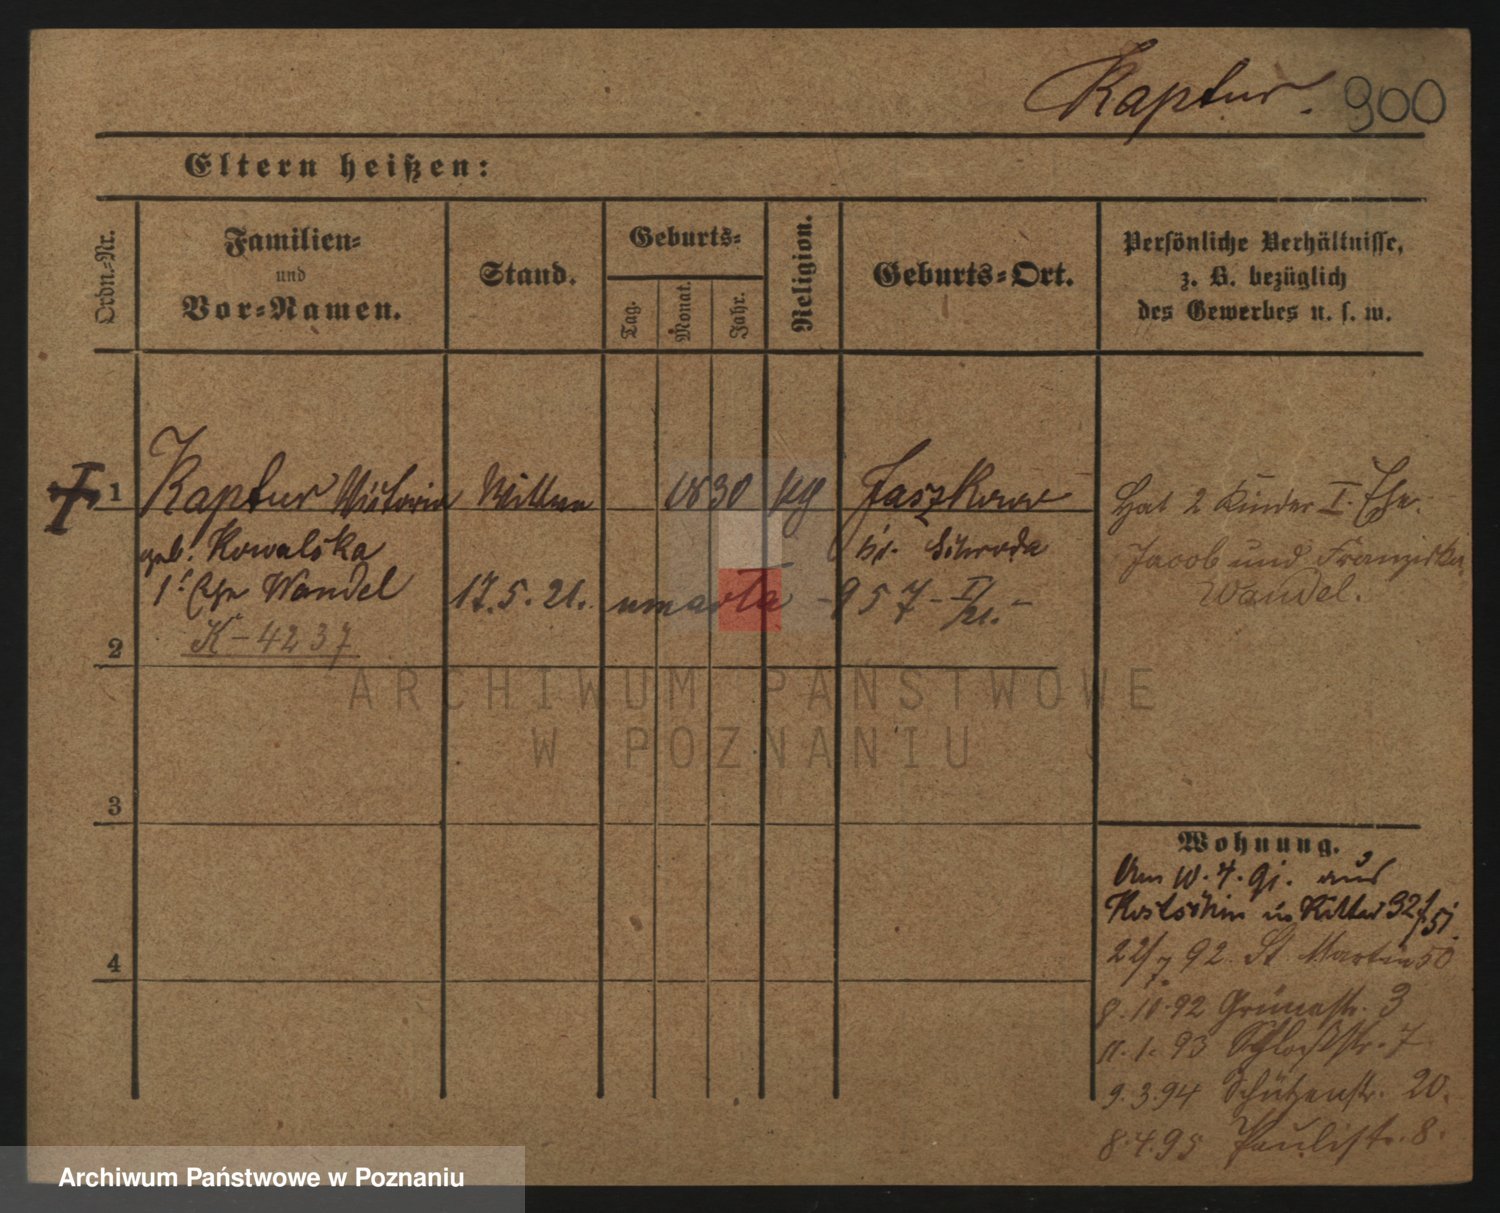 Kaptur. 900
Eltern heißen:
Ordn.-Nr.
Familien-
und
Vor-Namen.
Stand.
Geburts-
Tag.
Monat.
Jahr.
Religion.
Geburts-Ort.
Persönliche Verhältnisse,
z. B. bezüglich
des Gewerbes u. s. w.
1 Kaptur Victoria 1830 Jaszkowo
geb. Kowalska
Schroda
1. Ehe Wandel 17.5.21. umarła - 957 - II/21. -
K-4237
Hat 2 Kinder I. Ehe.
Jacob und Franziska
Wandel.
2
ARCHIWUM PAŃSTWOWE
W POZNANIU
3
4
Wohnung.
Am 10.4.91. aus
Kostschin
22/7 92 St. Martin 50
8.10.92 Grünestr. 3
11.1.93 Schloßstr. 7
9.3.94 Schützenstr. 20.
8.4.95 Paulistr. 8.
Archiwum Państwowe w Poznaniu